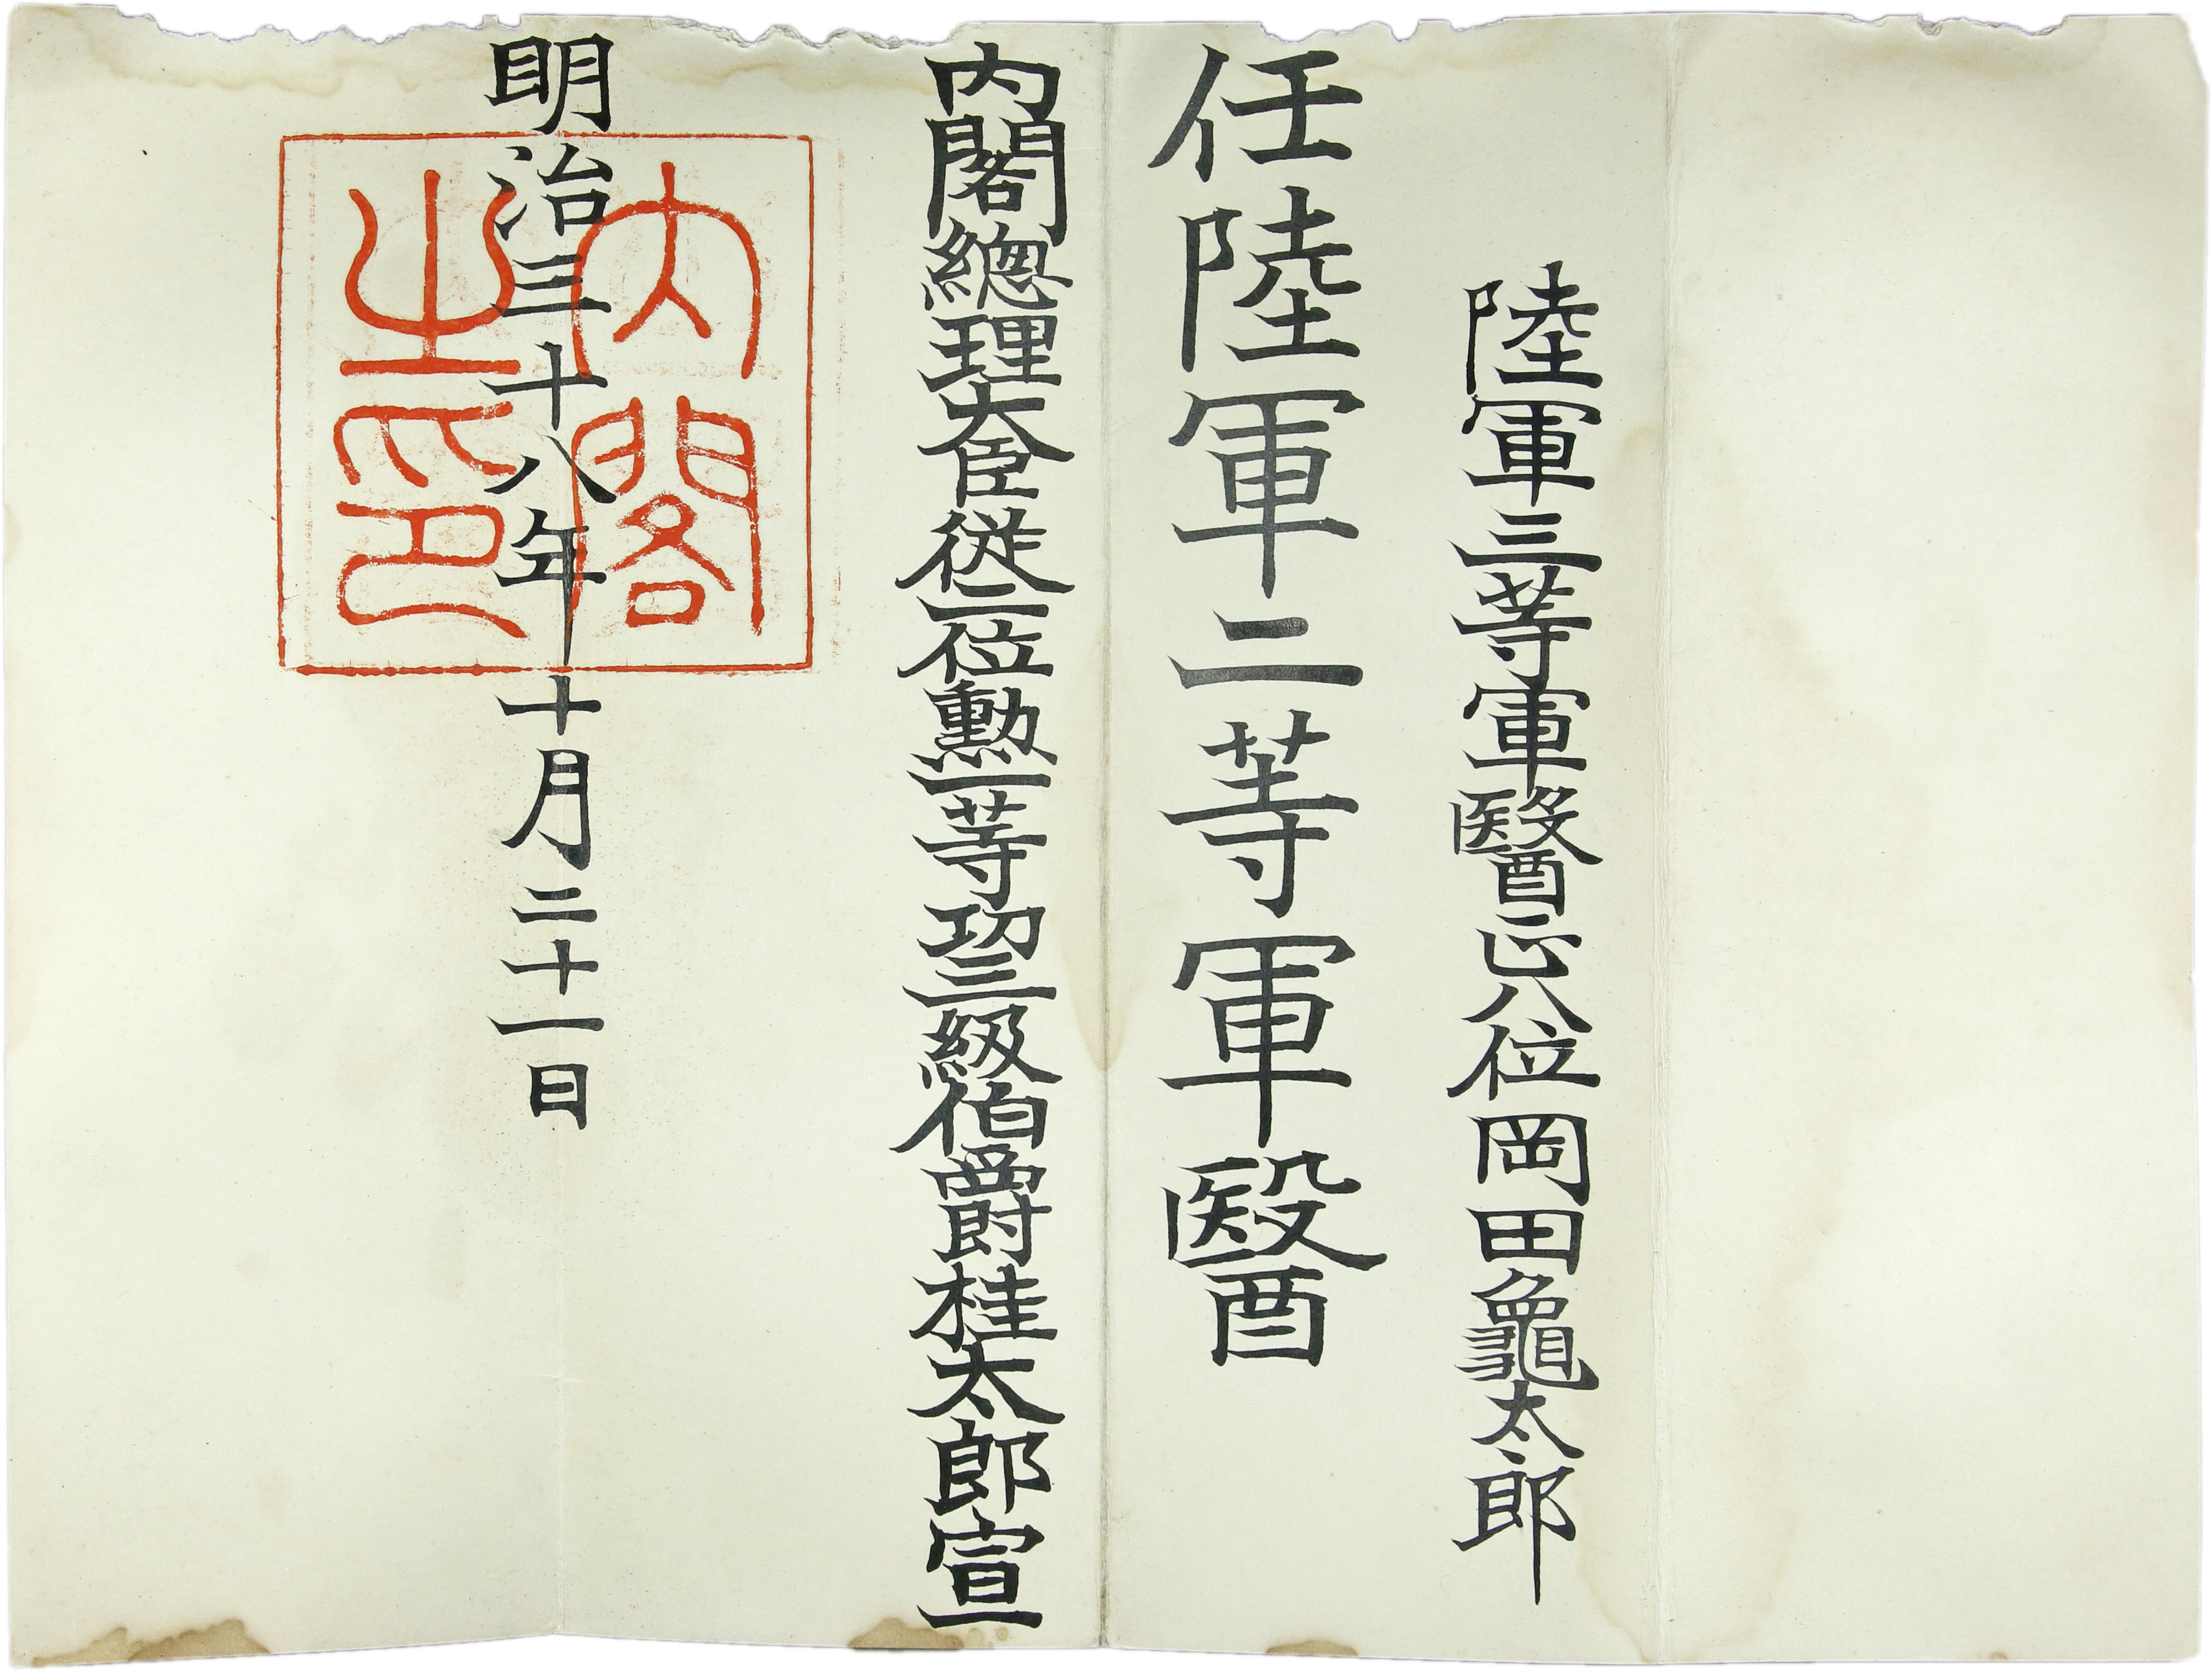 陸軍三等軍醫正八位岡田龜太郎
任陸軍二等軍醫
内閣總理大臣従二位勲一等功三級伯爵桂太郎宣
明治三十八年十月二十一日
内閣之印